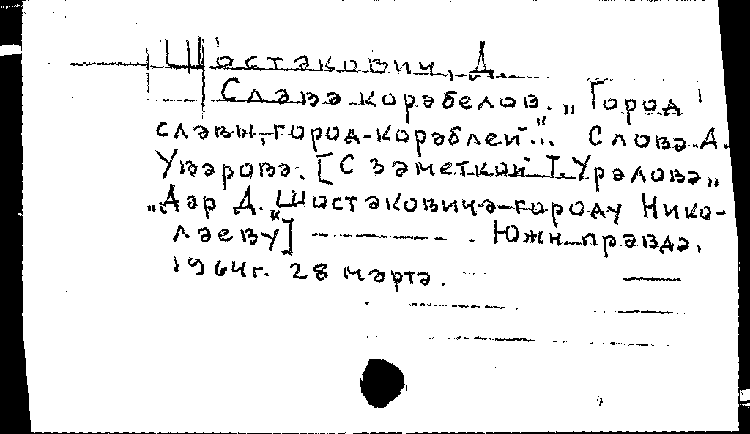 Шостакович, Д.
Слава корабелов. „Город
славы, город-кораблей“. Слова А.
Уварова. [С заметкой Т. Уралова „
„Дар Д. Шостаковича-городу Нико-
лаеву“] — . Южн. правда,
1964 г. 28 марта.